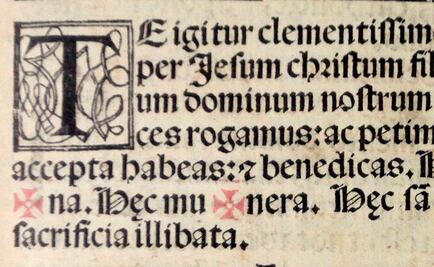 TE igitur clementissim
per Jesum christum fil
um dominum nostrum
ces rogamus: ac petim
accepta habeas: ⁊ benedicas. H
✠ na. Hęc mu ✠ nera. Hęc sā
sacrificia illibata.